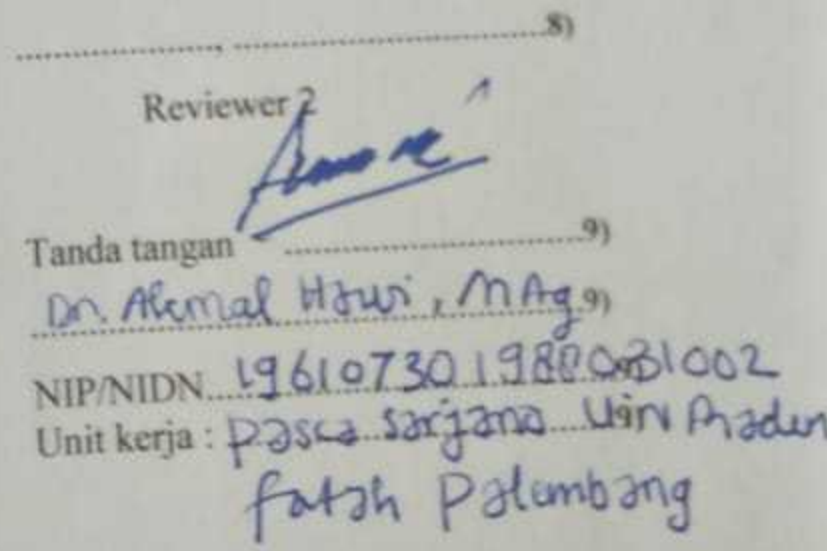 ........................, ........................................8)
Reviewer 2
Tanda tangan ........................................9)
Dr. Akmal Hawi, MAg 9)
NIP/NIDN
Unit kerja : Pasca Sarjana UIN Raden
Fatah Palembang